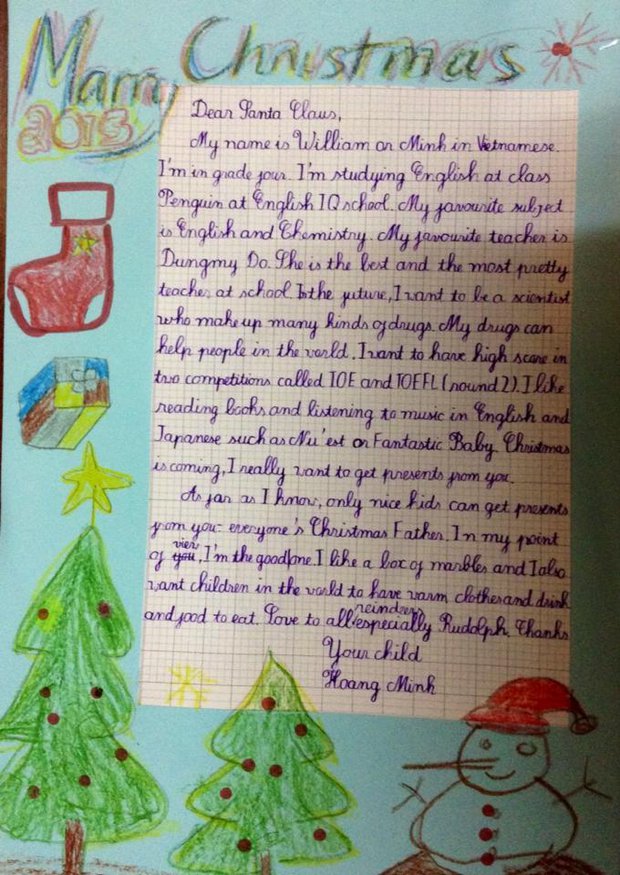 Marry Christmas
2013
Dear Santa Claus,
My name is William or Minh in Vietnamese.
I'm in grade four. I'm studying English at class
Penguin at English IQ school. My favourite subject
is English and Chemistry. My favourite teacher is
Dungmy Do. She is the best and the most pretty
teacher at school. In the future, I want to be a scientist
who make up many kinds of drugs. My drugs can
help people in the world. I want to have high score in
two competitions called IOE and TOEFL (round 2). I like
reading books and listening to music in English and
Japanese such as Nu'est or Fantastic Baby. Christmas
is coming, I really want to get presents from you.
As far as I know, only nice kids can get presents
from you - everyone's Christmas Father. In my point
of view, I'm the good one. I like a box of marbles and I also
want children in the world to have warm clothes and drink
and food to eat. Love to all reindeer especially Rudolph. Thanks
Your child
Hoang Minh